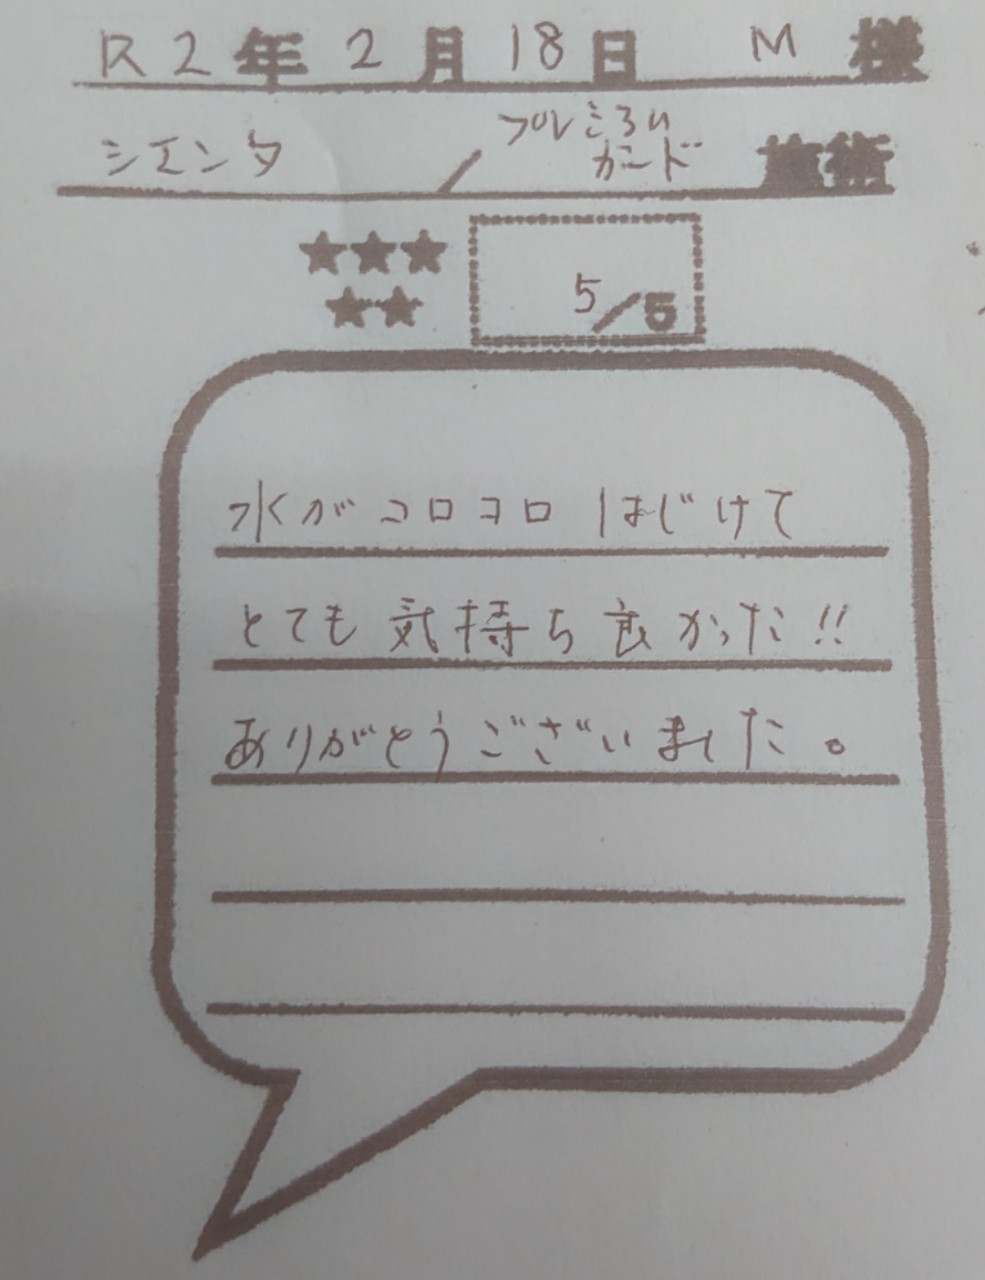 R2年2月18日 M様
シエンタ / プレミアム ガード 施術
★★★
★★
5/5
水がコロコロはじけて
とても気持ち良かった!!
ありがとうございました。